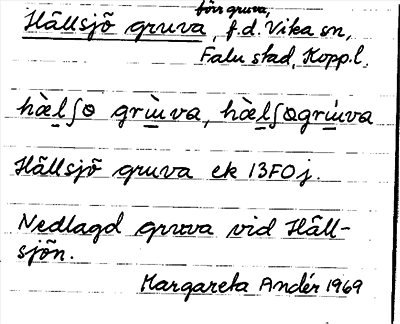 förr gruva,
Hällsjö gruva, f.d. Vika sn,
Falu stad, Kopp.l.
hæ̀l̲ʃɵ grù̲va, hæ̀l̲ʃɵgrù̲va
Hällsjö gruva ek 13F0j.
Nedlagd gruva vid Häll-
sjön.
Margareta Andér 1969